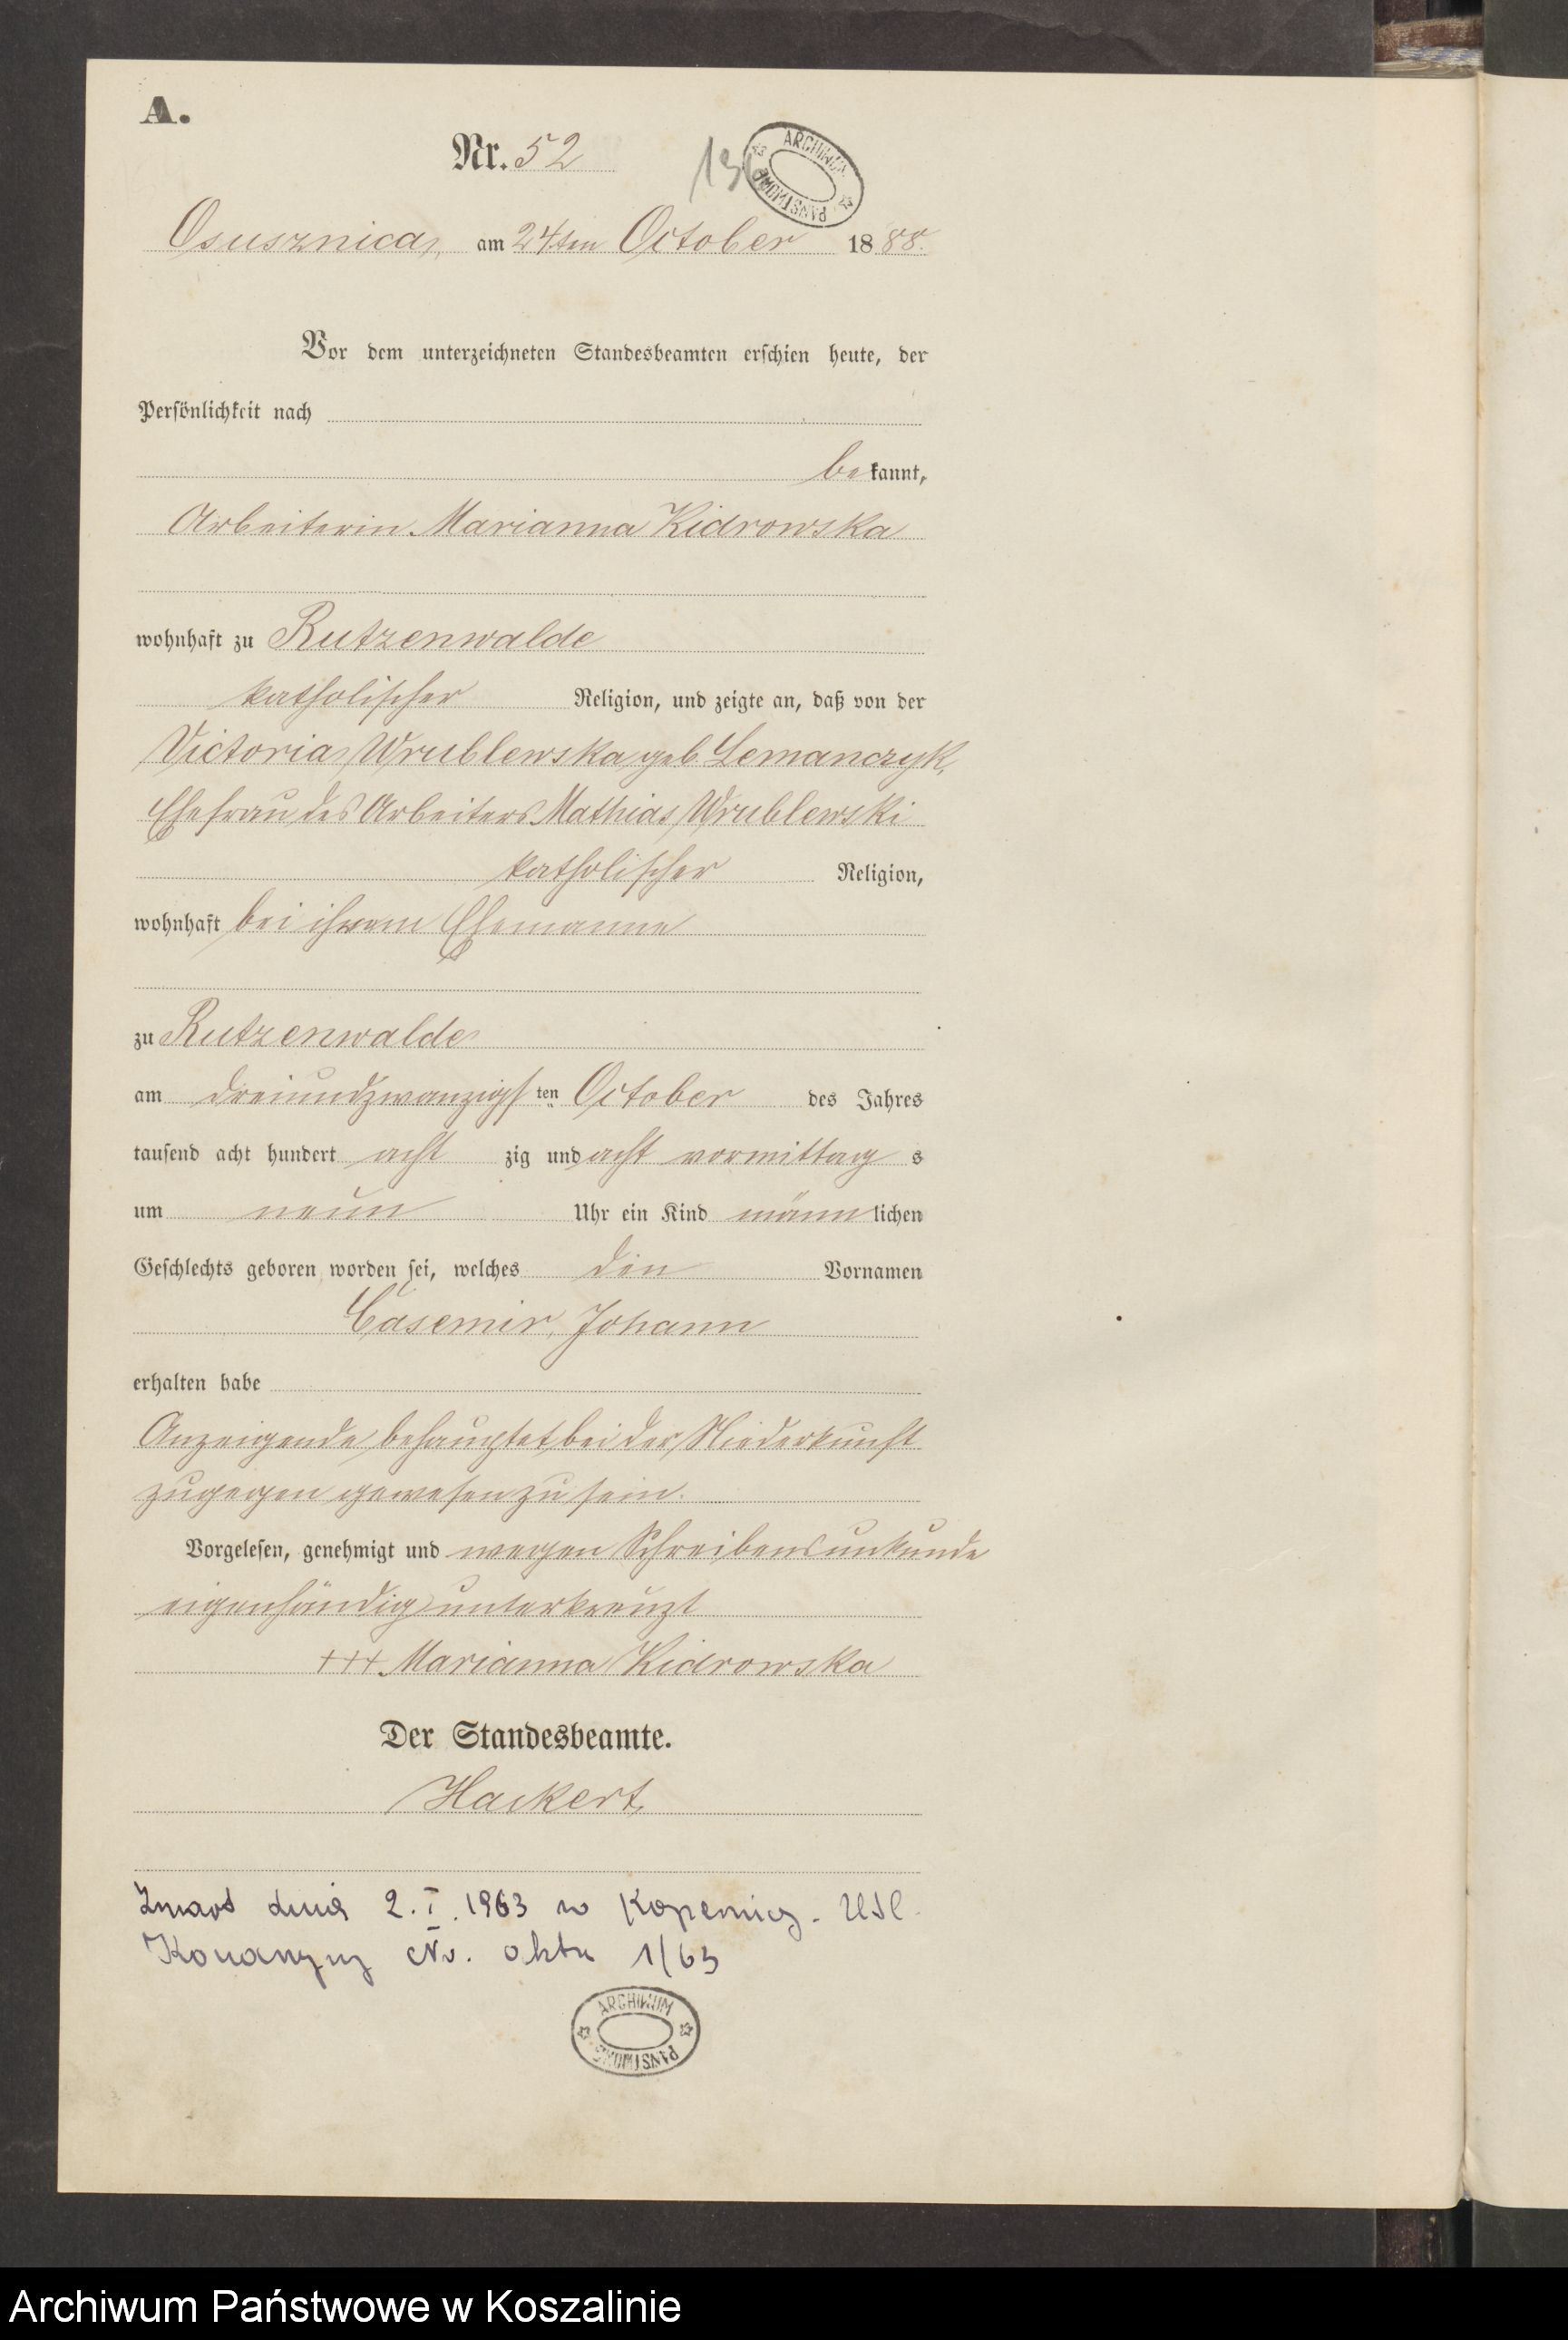 A.
Nr. 52
ARCHIWUM PAŃSTWOWE
Osusznica, am 24ten October 1888.
Vor dem unterzeichneten Standesbeamten erschien heute, der
Persönlichkeit nach
bekannt,
Arbeiterin Marianna Kidrowska
wohnhaft zu Rutzenwalde
katholischer Religion, und zeigte an, daß von der
Victoria Wrublewska geb. Lemanczyk,
Ehefrau des Arbeiters Mathias Wrublewski
katholischer Religion,
wohnhaft bei ihrem Ehemanne
zu Rutzenwalde
am dreiundzwanzigsten October des Jahres
tausend acht hundert acht zig und acht vormittag s
um neun Uhr ein Kind männlichen
Geschlechts geboren worden sei, welches den Vornamen
Casemir, Johann
erhalten habe
Anzeigende behauptet bei der Niederkunft
zugegen gewesen zu sein.
Vorgelesen, genehmigt und wegen Schreibensunkunde
eigenhändig unterkreuzt
+++ Marianna Kidrowska
Der Standesbeamte.
Hackert
Zmarł dnia 2.I.1963 w Kopernicy. USC.
Konarzyny Nr. aktu 1/63
ARCHIWUM PAŃSTWOWE
Archiwum Państwowe w Koszalinie